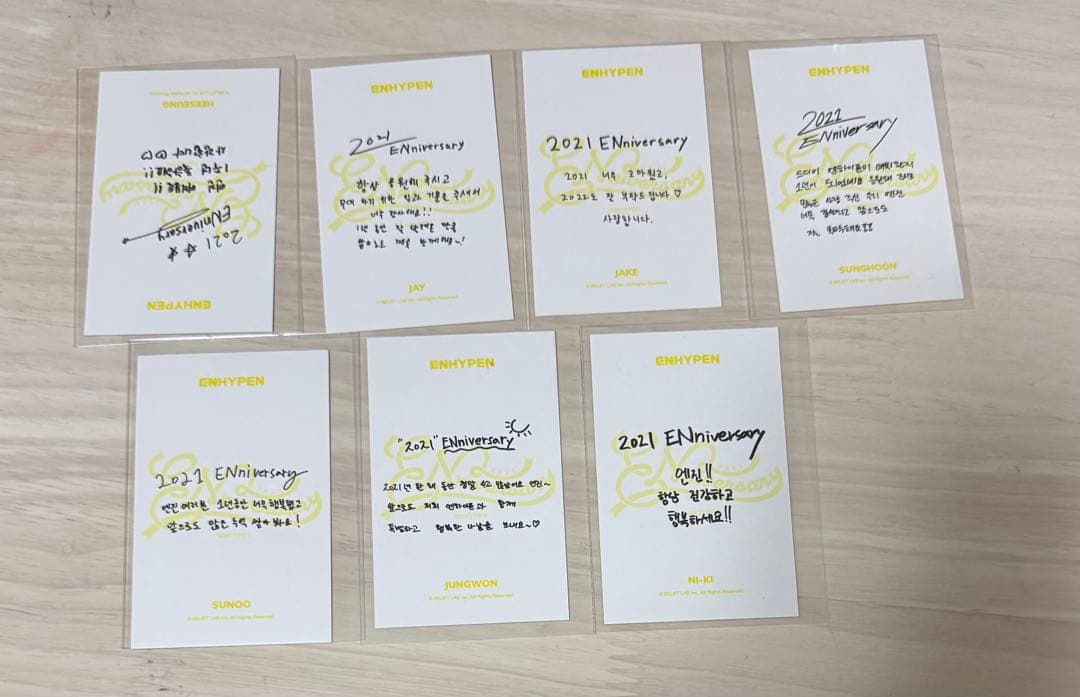 ENHYPEN
2021 ENniversary
HEESEUNG
ENHYPEN
2021
ENniversary
항상 응원해 주시고
너무 감사해요!!
앞으로도 계속 함께해요~!
JAY
© BELIFT LAB Inc. All Rights Reserved.
ENHYPEN
2021 ENniversary
2021 너무 고마웠고,
2022도 잘 부탁드립니다 ♡
사랑합니다.
JAKE
© BELIFT LAB Inc. All Rights Reserved.
ENHYPEN
2021
ENniversary
드디어 엔하이픈이 데뷔한지
1년이 되었네요
너무 감사하고 앞으로도
잘 부탁해요
SUNGHOON
© BELIFT LAB Inc. All Rights Reserved.
ENHYPEN
2021 ENniversary
엔진 여러분 1년동안 너무 행복했고
앞으로도 많은 추억 쌓아 봐요!
SUNOO
© BELIFT LAB Inc. All Rights Reserved.
ENHYPEN
"2021" ENniversary
2021년 한 해 동안 정말 수고 많았어요 엔진~
앞으로도 저희 엔하이픈과 함께
특별하고 행복한 나날을 보내요~♡
JUNGWON
© BELIFT LAB Inc. All Rights Reserved.
ENHYPEN
2021 ENniversary
엔진!!
항상 건강하고
행복하세요!!
NI-KI
© BELIFT LAB Inc. All Rights Reserved.